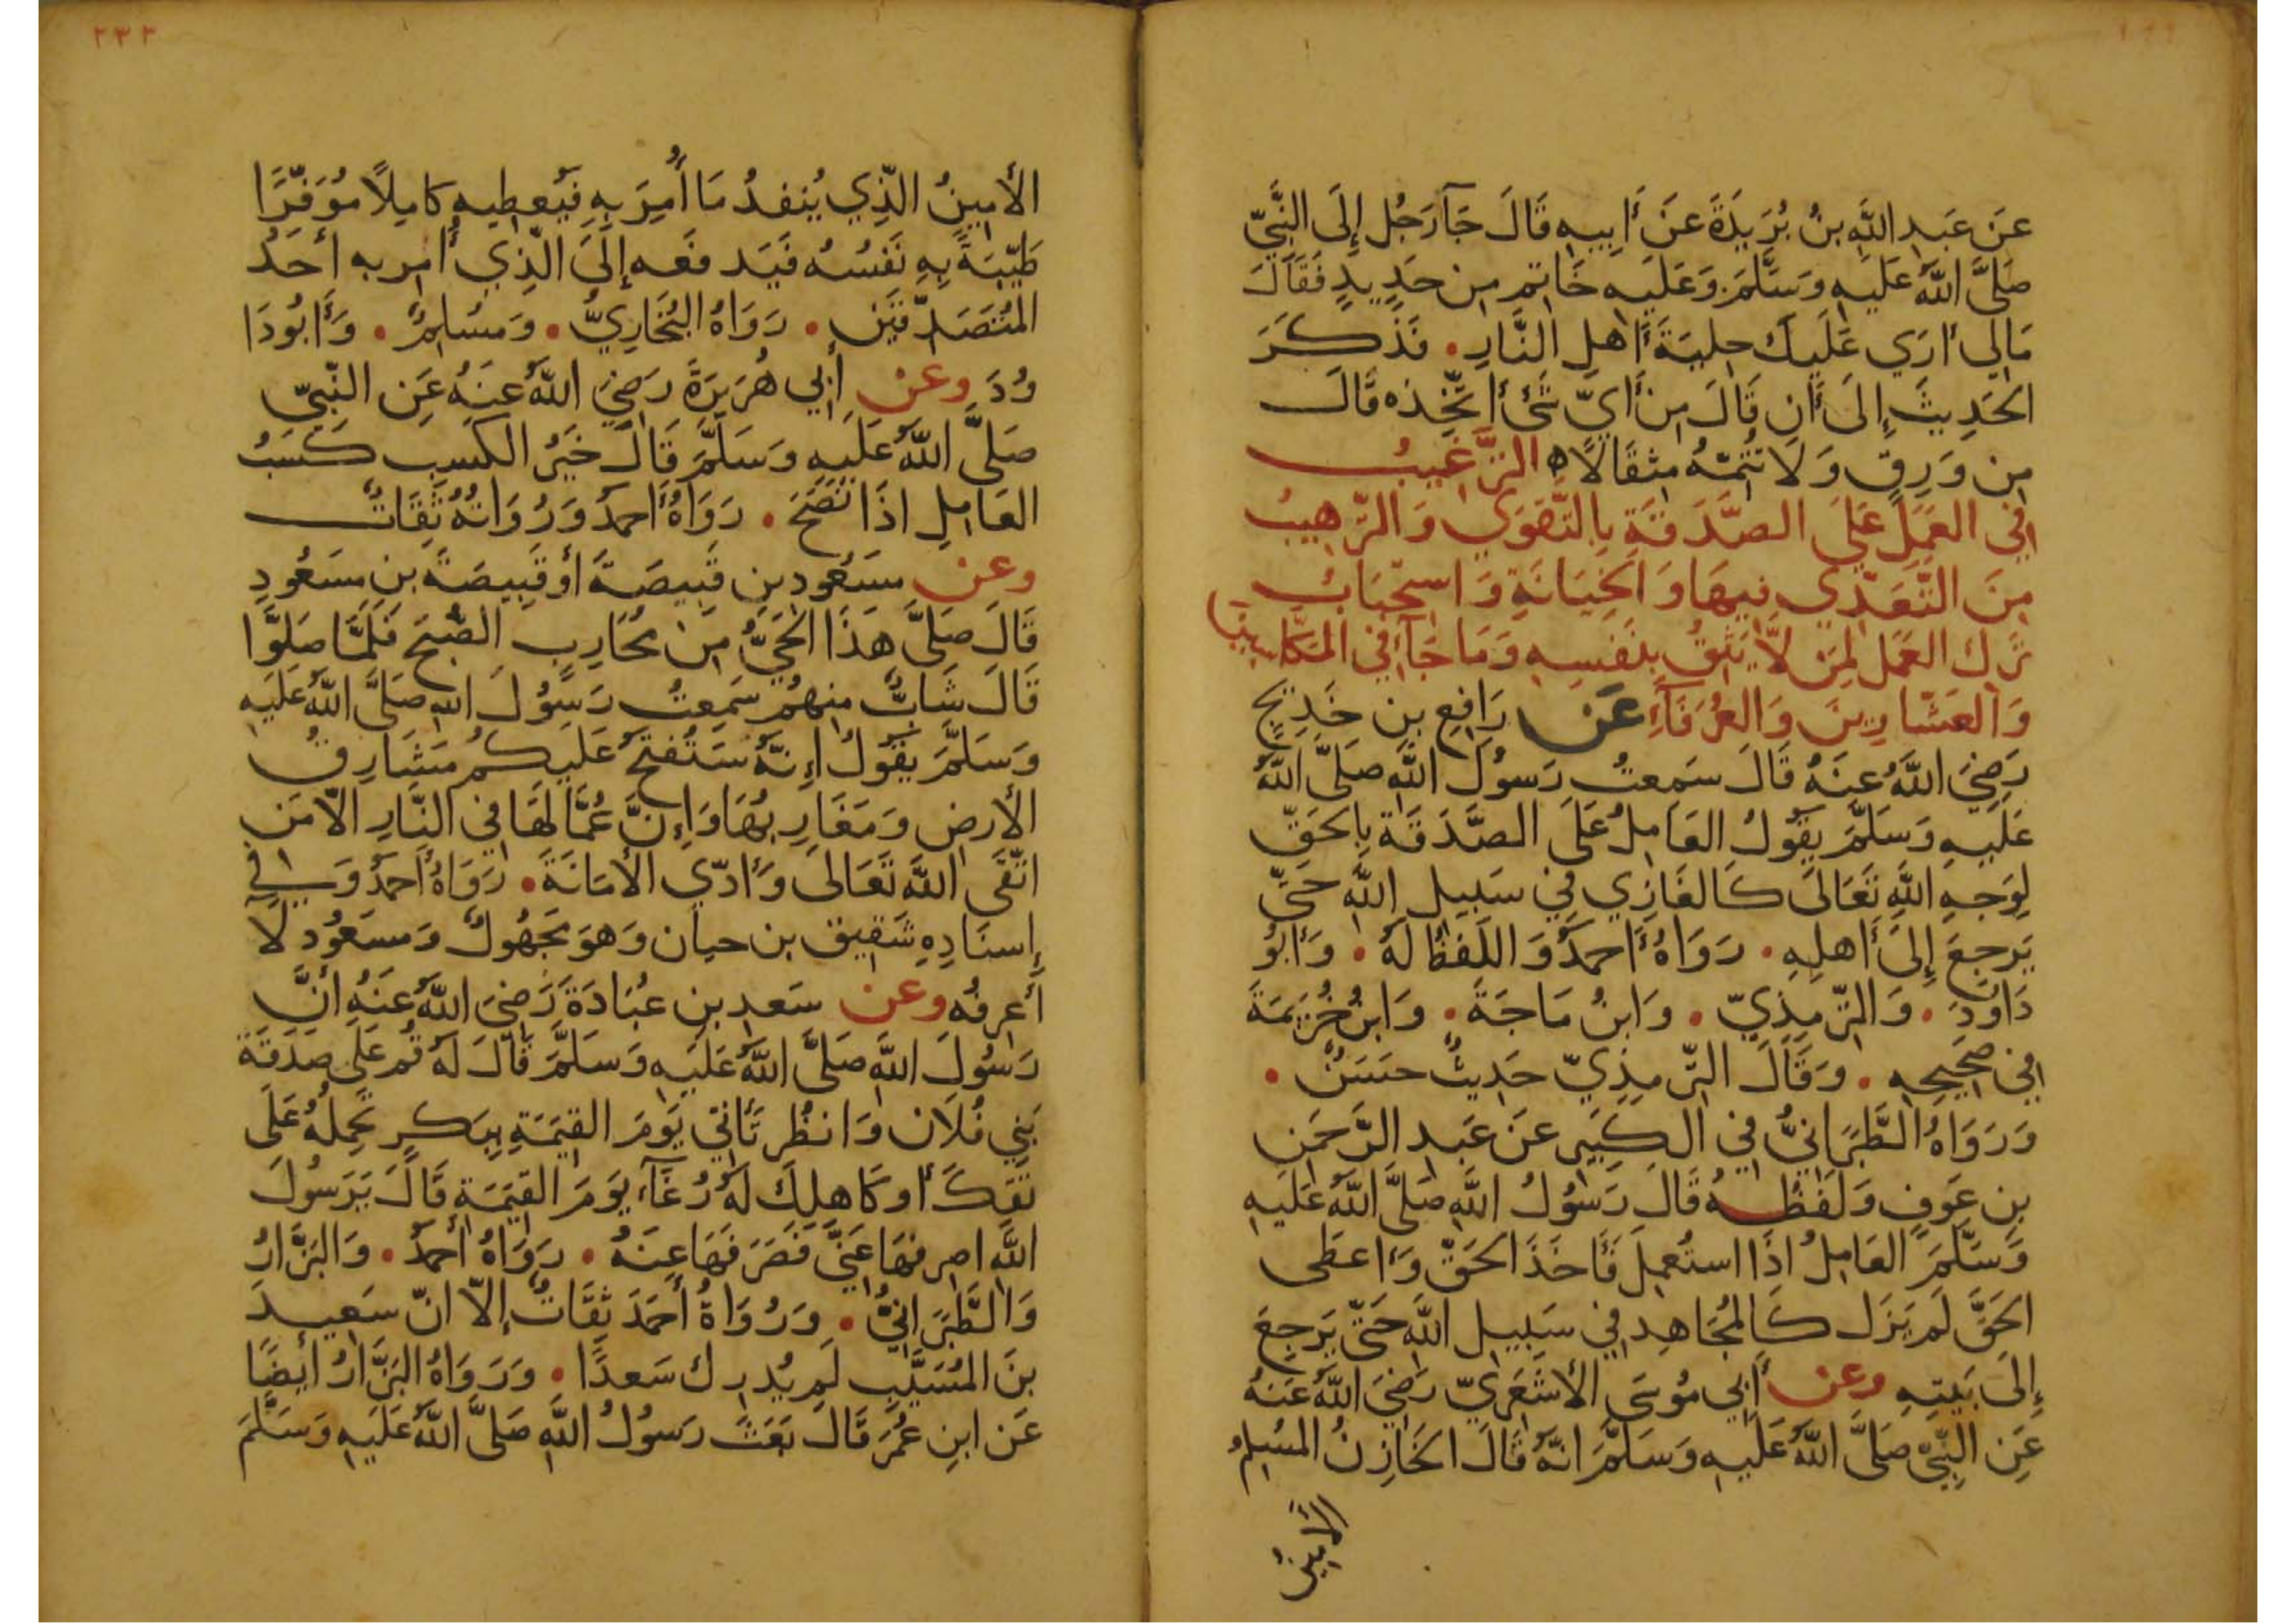 عَن عَبدِ اللَّهِ بنُ بُرَيدَةَ عَن أَبِيهِ قَالَ جَآرَجُل إِلَى النَّبيّ
صَلَّى اللَّهُ عَلَيهِ وَسَلَّمَ وَعَلَيه خَاتِم مِن حَدِيدٍ فَقَالَ
مَالِي أرَي عَلَيكَ حِليَةَ أَهلِ النَّارِ . فَذَكَرَ
الحَدِيثَ إِلَى أَن قَالَ مِن أَيّ شَئ أتَّخِذه قَالَ
مِن وَرِقٍ وَلَا تُتِمّهُ مِثقَالًا ه التَّرغِيبُ
فِي العَمَل عَلَى الصَّدَقَةِ بِالتَّقوَي وَالتَّرهِيبُ
مِنَ التَّعَدّي فِيهَا وَالخِيَانَةِ وَاستِحبَابُ
تَرك العَمَل لِمَن لَّا يَثِقُ بِنَفسِهِ وَمَا جَآ فِي المَكَّاسِينَ
وَالعَشّارِينَ وَالعُرَفَآءِ عَن رَافِعِ بنِ خَدِيجٍ
رَضِيَ اللَّهُ عَنهُ قَالَ سَمِعتُ رَسُولَ اللَّهِ صَلَّى اللَّهُ
عَلَيهِ وَسَلَّمَ يَقُولُ العَامِلُ عَلَى الصَّدَقَةِ بِالحَقّ
لِوَجهِ اللَّهِ تَعَالَى كَالغَازِي فِي سَبِيلِ اللَّهِ حَتّى
يَرجِعَ إِلَى أَهلِهِ . رَوَاهُ أَحمَدُ وَاللَفظُ لَهُ . وَأَبُو
دَاوُدَ . وَالتِّرمِذِيّ . وَابنُ مَاجَةَ . وَابنُ خُزَيمَةَ
فِي صَحِيحِهِ . وَقَالَ التِّرمِذِيّ حَدِيثٌ حَسَنٌ .
وَرَوَاهُ الطَّبَرَانِيُّ فِي الكَبِيرِ عَن عَبدِ الرَّحمَنِ
بنِ عَوفٍ وَلَفظُهُ قَالَ رَسُولُ اللَّهِ صَلَّى اللَّهُ عَلَيهِ
وَسَلَّمَ العَامِلُ اذَا استُعمِلَ فَأَخَذَ الحَقّ وَأَعطَى
الحَقَّ لَم يَزَل كَالمُجَاهِدِ فِي سَبِيلِ اللَّهِ حَتّى يَرجِعَ
إِلَى بَيتِهِ وعن أَبِي مُوسَى الأَشعَرِيّ رَضِيَ اللَّهُ عَنهُ
عَنِ النَّبِيّ صَلَّى اللَّهُ عَلَيهِ وَسَلَّمَ انّهُ قَالَ الخَازِنُ المُسلِمُ
الأَمِينُ
٢٣٢
الأَمِينُ الَّذِي يُنفِذُ مَا أُمِرَ بِهِ فَيُعطِيهِ كامِلًا مُوَفّرًا
طَيّبَةً بِهِ نَفسُهُ فَيَدفَعه إِلَى الَّذِي أُمِر به أحَدُ
المُتَصَدّقَين . رَوَاهُ البُخَارِيُّ . وَمسُلِمٌ . وَأَبُودَا
وُدَ وعن أَبِي هُرَيرَةَ رَضِيَ اللَّهُ عنهُ عَنِ النَّبِيّ
صَلَّى اللَّهُ عَلَيهِ وَسَلَّمَ قَالَ خَيرُ الكَسبِ كَسبُ
العَامِلِ اذَا نَصَحَ . رَوَاهُ أَحمَدُ وَرُوَاتُهُ ثِقَاتٌ
وعن مسَعُود بنِ قَبِيصَةَ أو قَبِيصَةَ بنِ مسَعُودٍ
قَالَ صَلَّى هَذَا الحَيُّ مِن مُحَارِبٍ الصُّبحَ فَلَمَّا صَلوَّا
قَالَ شَابٌّ مِنهُم سَمِعتُ رَسُولَ اللهِ صَلَّى اللَّهُ عَلَيهِ
وَسَلَّمَ يَقُولُ إِنّهُ سَتُفتَحُ عَلَيكُم مَشَارِقُ
الأَرضِ وَمَغَارِبُهَا وَإِنَّ عُمَّالَهَا فِي النَّارِ الّا مَنِ
اتَّقَى اللَّهَ تَعَالَى وَأَدّي الأَمَانَةَ . رَوَاهُ أَحمَدُ وَفِي
إِسنَادِهِ شَقِيق بن حيان وَهوَ مَجهُولٌ وَمسعُود لَا
أعرِفُه وعن سَعدِ بنِ عُبَادَةَ رَضِيَ اللَّهُ عَنهُ أنَّ
رَسُولَ اللَّهِ صَلَّى اللَّهُ عَلَيهِ وَسَلَّمَ قَالَ لَهُ قُم عَلَى صَدَقَةِ
بَنِي فُلَان وَانظُر تَأتِي يَومَ القِيَمَةِ بِبَكرٍ تَحمِلُهُ عَلَى
عَاتِقِكَ أو كَاهِلِكَ لَهُ رُغَآء يَومَ القِيَمَةِ قَالَ يَرَسُولَ
اللَّهِ اصرِفهَا عَنّي فَصَرَفَهَا عنهُ . رَوَاهُ أَحمَدُ . وَالبَزَّارُ
وَالطَّبَرَانِيُّ . وَرُوَاةُ أَحمَدَ ثِقَاتٌ إِلاّ انّ سَعِيدَ
بنَ المُسَيَّبِ لَم يُدرِك سَعدًا . وَرَوَاهُ البَزَّارُ أيضًا
عَن ابنِ عُمَرَ قَالَ بَعَثَ رَسُولُ اللَّهِ صَلَّى اللَّهُ عَلَيهِ وَسَلَّمَ